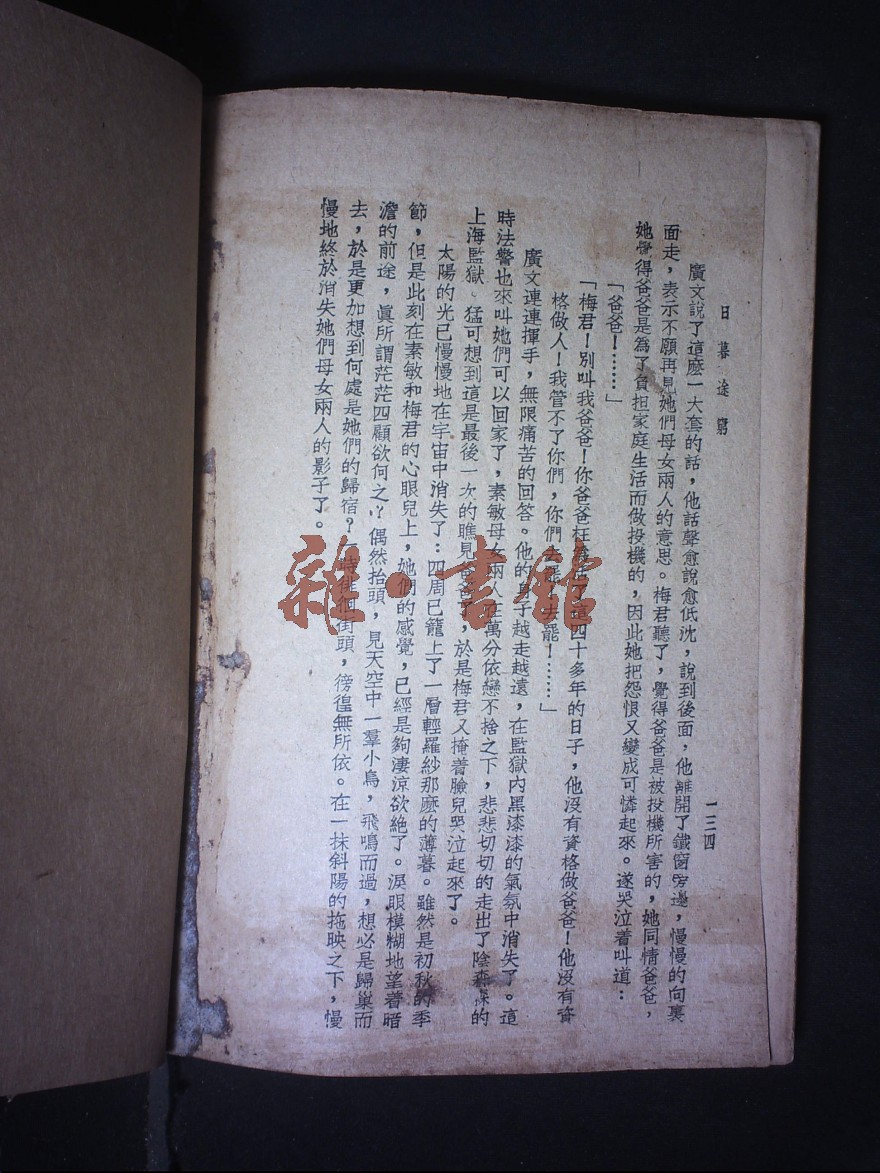 日暮途窮
一三四
廣文說了這麽一大套的話，他話聲愈說愈低沈，說到後面，他離開了鐵窗旁邊，慢慢的向裏
面走，表示不願再見她們母女兩人的意思。梅君聽了，覺得爸爸是被投機所害的，她同情爸爸，
她覺得爸爸是為了負担家庭生活而做投機的，因此她把怨恨又變成可憐起來。遂哭泣着叫道：
「爸爸！……」
「梅君！別叫我爸爸！你爸爸枉為活了這四十多年的日子，他沒有資格做爸爸！他沒有資
格做人！我管不了你們，你們去罷！去罷！……」
廣文連連揮手，無限痛苦的回答。他的身子越走越遠，在監獄內黑漆漆的氣氛中消失了。這
時法警也來叫她們可以回家了，素敏母女兩人在萬分依戀不捨之下，悲悲切切的走出了陰森森的
上海監獄 猛可想到這是最後一次的瞧見爸爸了，於是梅君又掩着臉兒哭泣起來了。
太陽的光已慢慢地在宇宙中消失了：四周已籠上了一層輕羅紗那麽的薄暮。雖然是初秋的季
節，但是此刻在素敏和梅君的心眼兒上，她們的感覺，已經是夠淒涼欲絕了。淚眼模糊地望着暗
澹的前途，眞所謂茫茫四顧欲何之？偶然抬頭，見天空中一羣小鳥，飛鳴而過，想必是歸巢而
去，於是更加想到何處是她們的歸宿？一時徘徊街頭，徬徨無所依。在一抹斜陽的拖映之下，慢
慢地終於消失她們母女兩人的影子了。
雜·書館